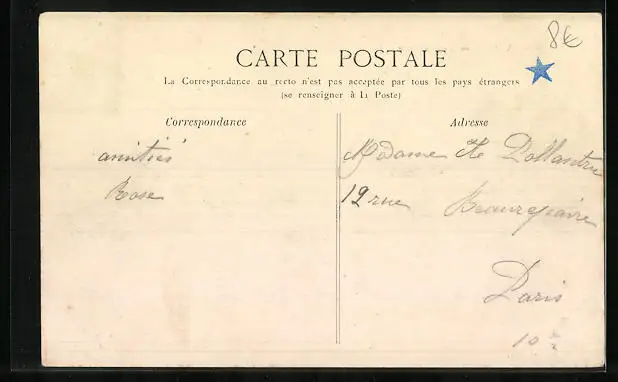 8€
CARTE POSTALE
La Correspondance au recto n'est pas acceptée par tous les pays étrangers
(se renseigner à la Poste)
Correspondance
Adresse
amitiés
Rose
Madame
12 rue Beaurepaire
Paris
10e